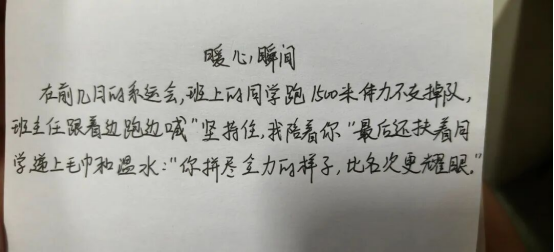 暖心瞬间
在前几日的系运会,班上的同学跑1500米体力不支掉队,
班主任跟着边跑边喊"坚持住,我陪着你"最后还扶着同
学递上毛巾和温水:"你拼尽全力的样子,比名次更耀眼。"